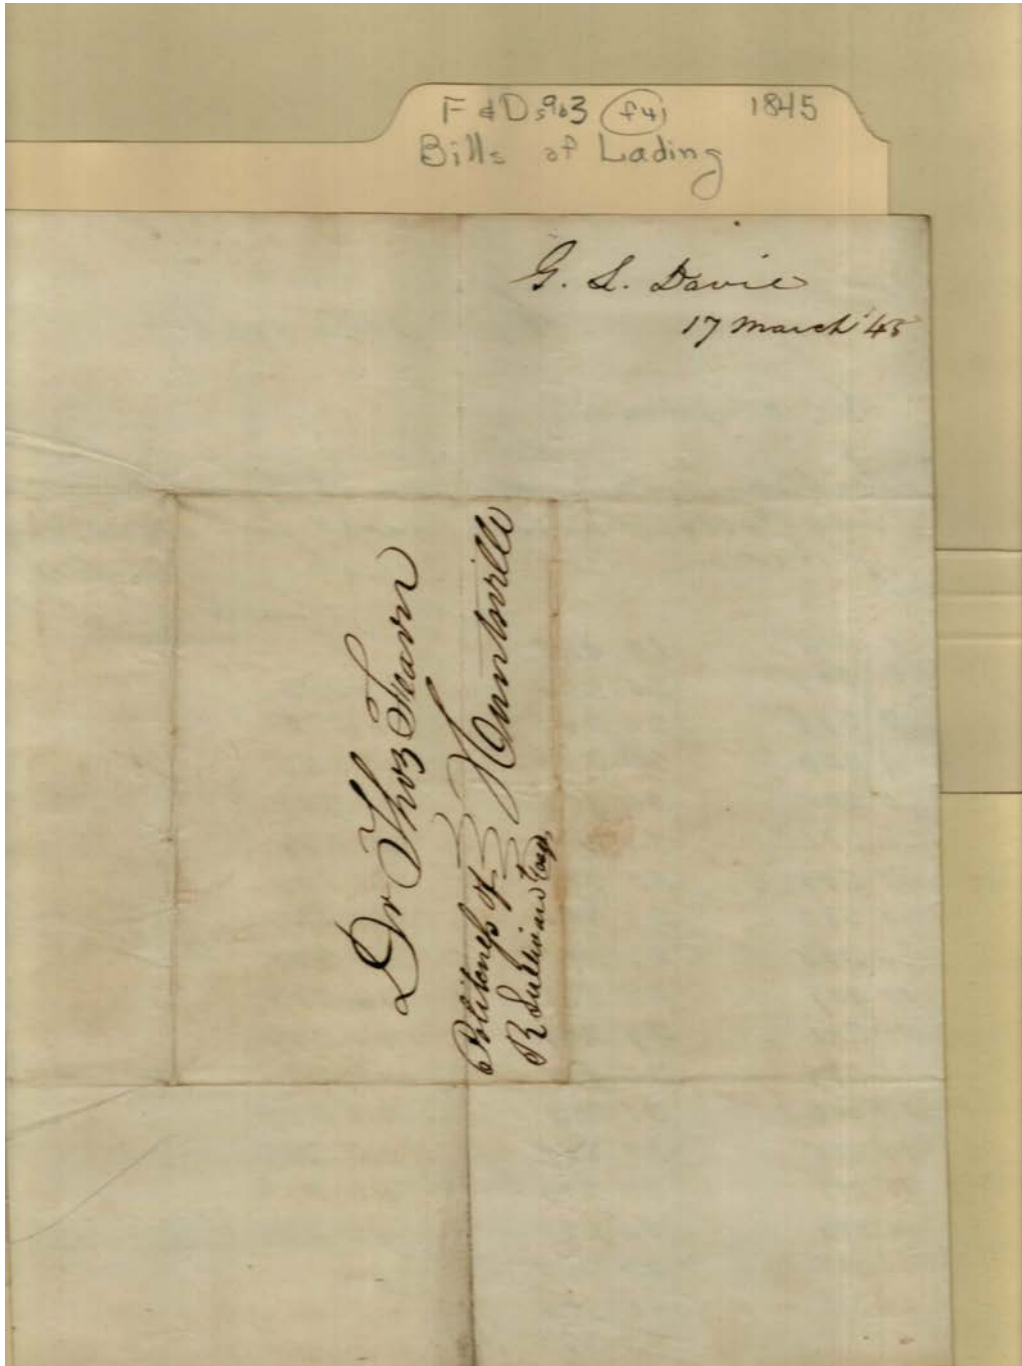 F & D s963 (f4) 1845
Bills of Lading
G. S. Davie
17 March '45
Dr Thos Fearn
Huntsville
Politeness of
R Sullivan Esqr.